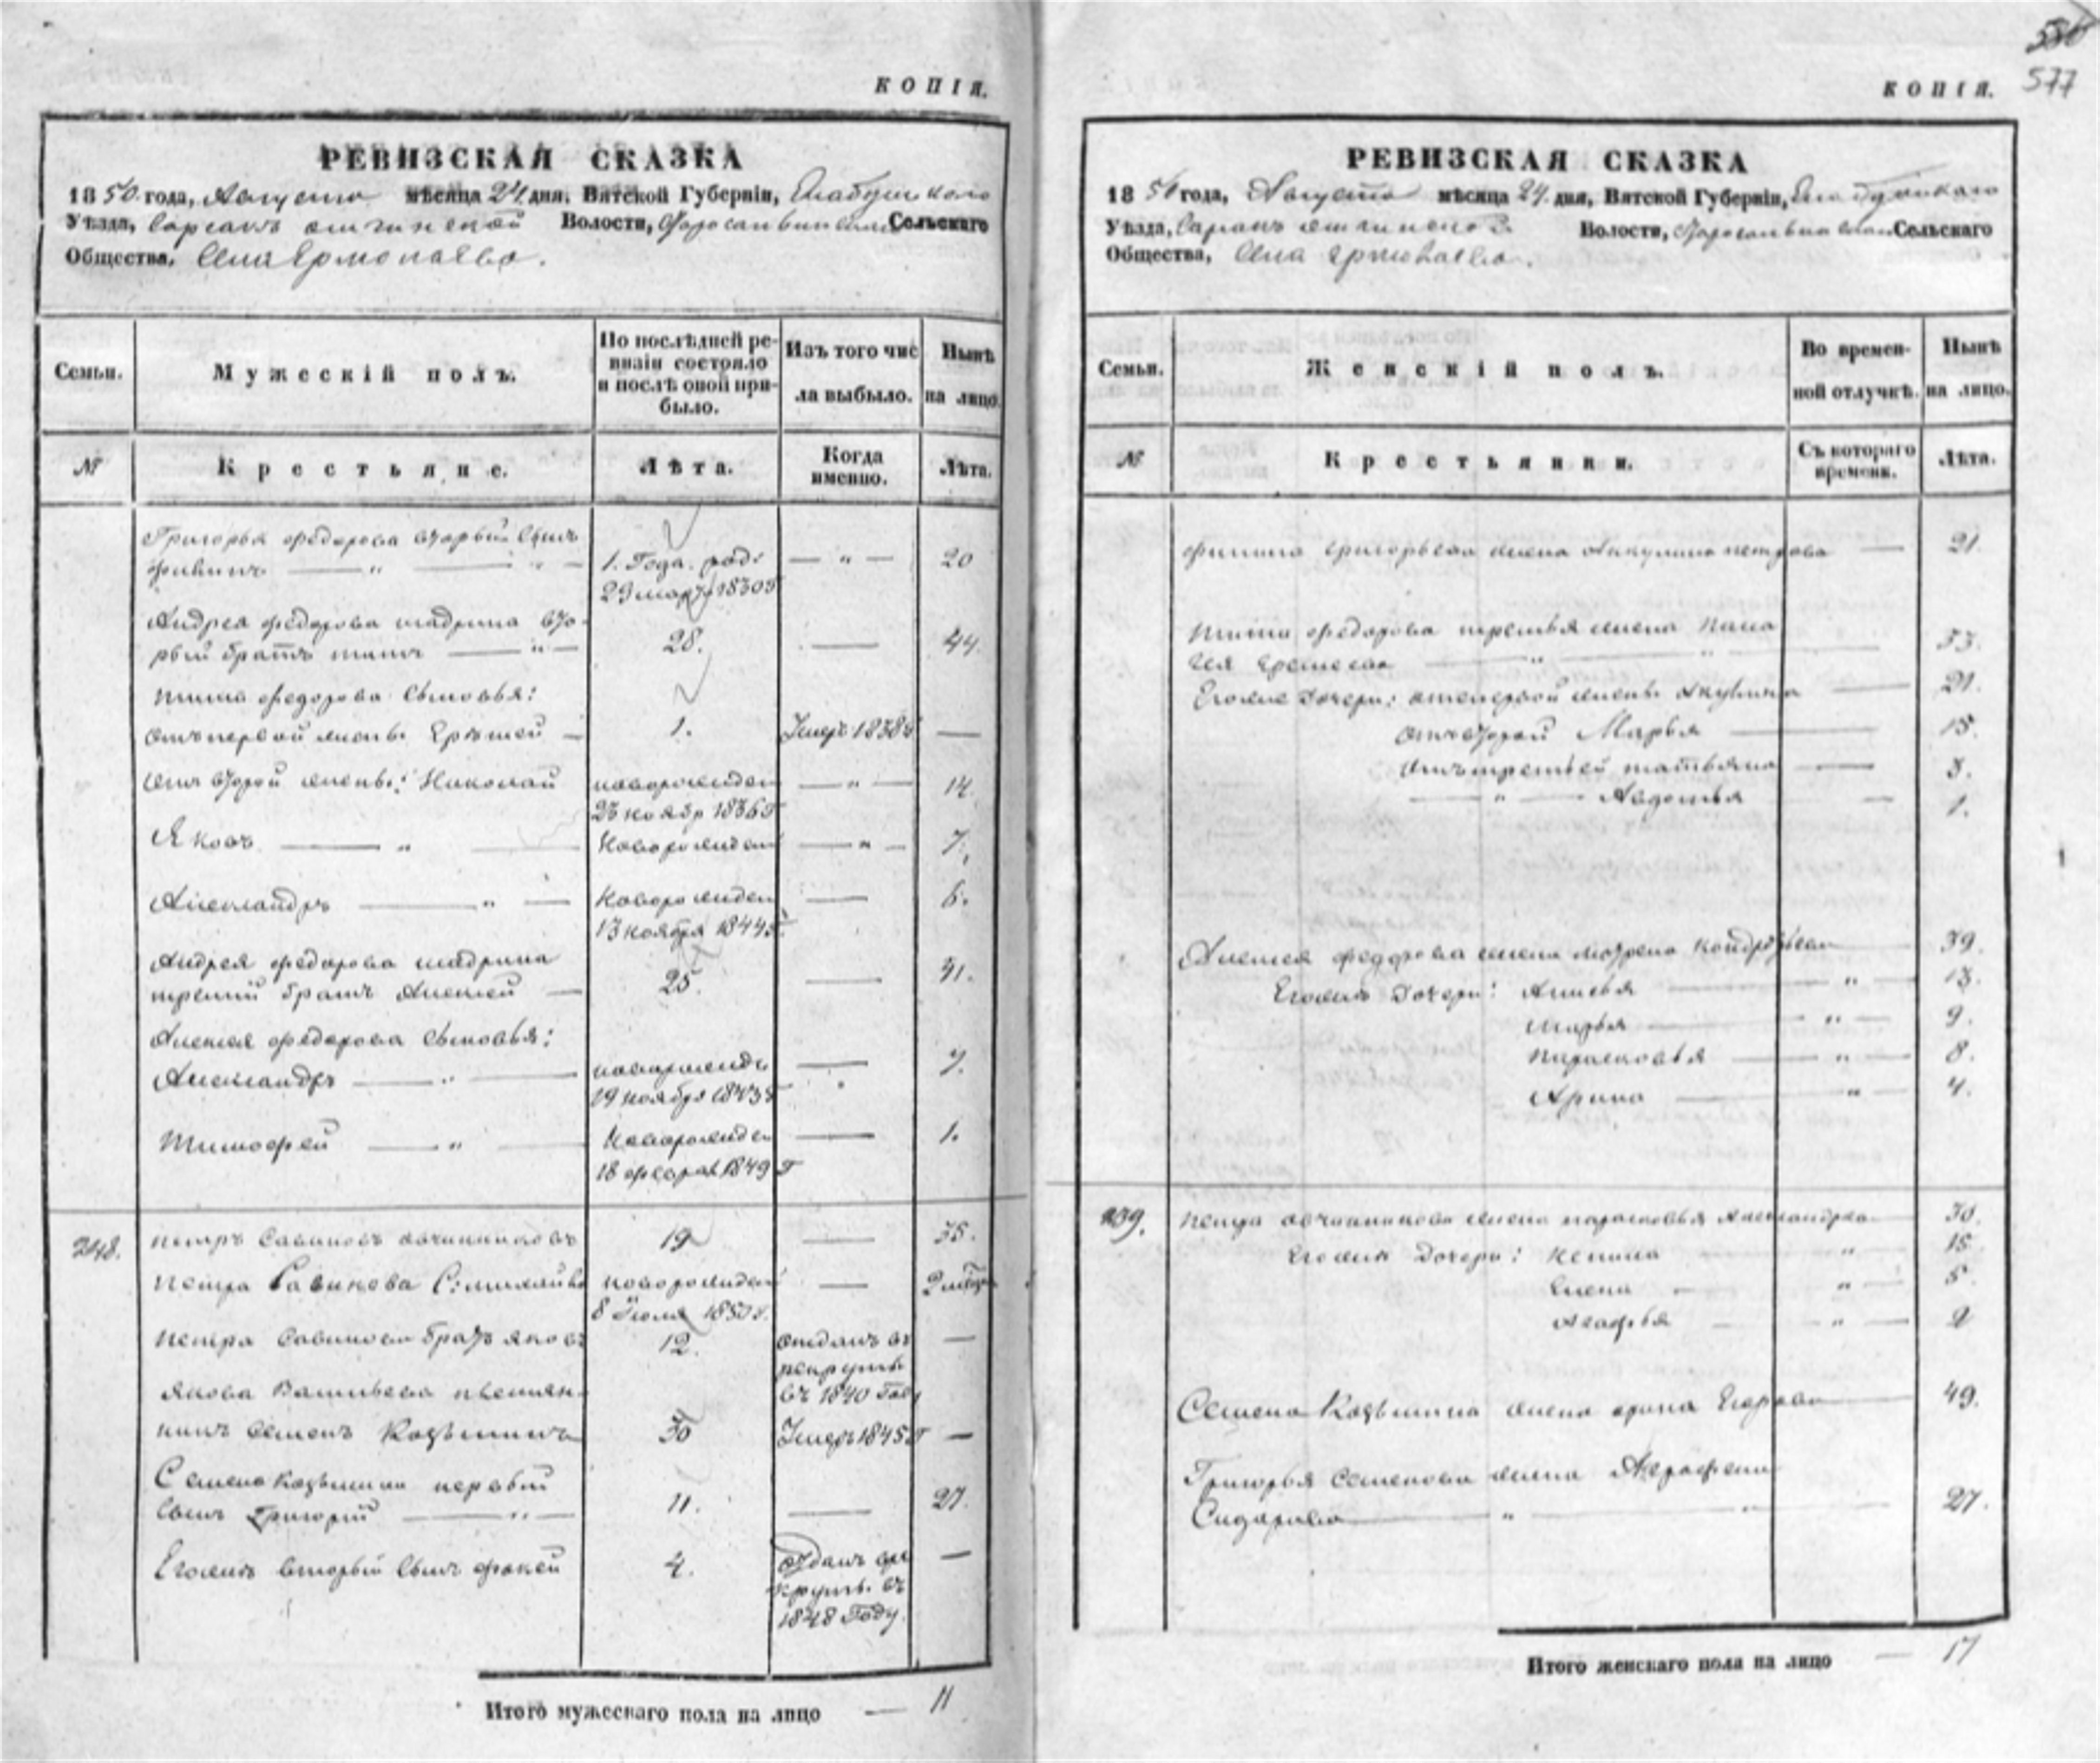 КОПІЯ.
РЕВИЗСКАЯ СКАЗКА
1850 года, Августа мѣсяца 24 дня, Вятской Губерніи, Елабушскаго
Уѣзда, Волости, Сельскаго
Общества, Села Ермолаева.
Семьи.
Мужескій полъ.
По послѣдней ре-
визіи состояло
и послѣ оной при-
было.
Изъ того чис
ла выбыло.
Нынѣ
на лицо.
№
Крестьяне.
Лѣта.
Когда
именно.
Лѣта.
Григорья Федорова вторый сынъ
Филипъ — " — " — 1. Года. род: — " — 20
29 марта 1830 г
Андрея Федорова Шадрина вто-
рый братъ Титъ — " — 28. — 44.
Тита Федорова сыновья:
отъ первой жены Еремей — 1. Умеръ 1838 г —
отъ второй жены: Николай новорожден — " — 14.
23 ноябр 1836 г
Яковъ — " — Новорожден — " — 7.
Александръ — " — Новорожден — 6.
13 ноября 1844 г.
Андрея Федорова Шадрина
третій братъ Алексей — 25. — 41.
Алексея Федорова сыновья:
Александръ — " — новорожде — 7.
19 ноября 1843 г
Тимофей — " — Новорожде — 1.
18 феврал 1849 г
248. Петръ Савиновъ Овчинниковъ 19 — 35.
Петра Савинова новорожден — 2 мѣсяц
8 Іюля 1850 г.
Петра Савинова братъ Яковъ 12. отданъ въ —
рекруты
въ 1840 Году
Якова Васильева племян-
никъ Семенъ Козьминъ 30 Умеръ 1845 г —
Семена Козьмина первый
сынъ Григорій — " — 11. — 27.
Егожъ вторый сынъ Фокей 4. отданъ вре —
круты въ
1848 Году.
Итого мужескаго пола на лицо — 11
580
577
КОПІЯ.
РЕВИЗСКАЯ СКАЗКА
1850 года, Августа мѣсяца 24 дня, Вятской Губерніи,
Уѣзда, Волости, Сельскаго
Общества, Села Ермолаева.
Семьи.
Женскій полъ.
Во времен-
ной отлучкѣ.
Нынѣ
на лицо.
№
Крестьянки.
Съ котораго
времени.
Лѣта.
Филипа Григорьева жена Аккулина Петрова — 21.
Тита Федорова третья жена Пала
гея Еремеева — " — " — 33.
Егоже дочери: отъ первой жены Акулина — 21.
отъ второй Марья — 15.
отъ третьей Татьяна — 3.
— " — Авдотья — 1.
Алексея Федорова жена Матрена Кондратьева — 39.
Егожъ дочери: — " — 13.
Марья — " — 9.
Парасковья — " — 8.
Арина — " — 4.
239. Петра Овчинникова жена Парасковья Александрова — 30.
Егожъ дочери: — " — 15.
Елена — " — 5.
Агафья — " — 2
Семена Козьмина жена Арина Егорова — 49.
Григорья Семенова жена Аграфена
Сидорова — " — " — 27.
Итого женскаго пола на лицо — 17